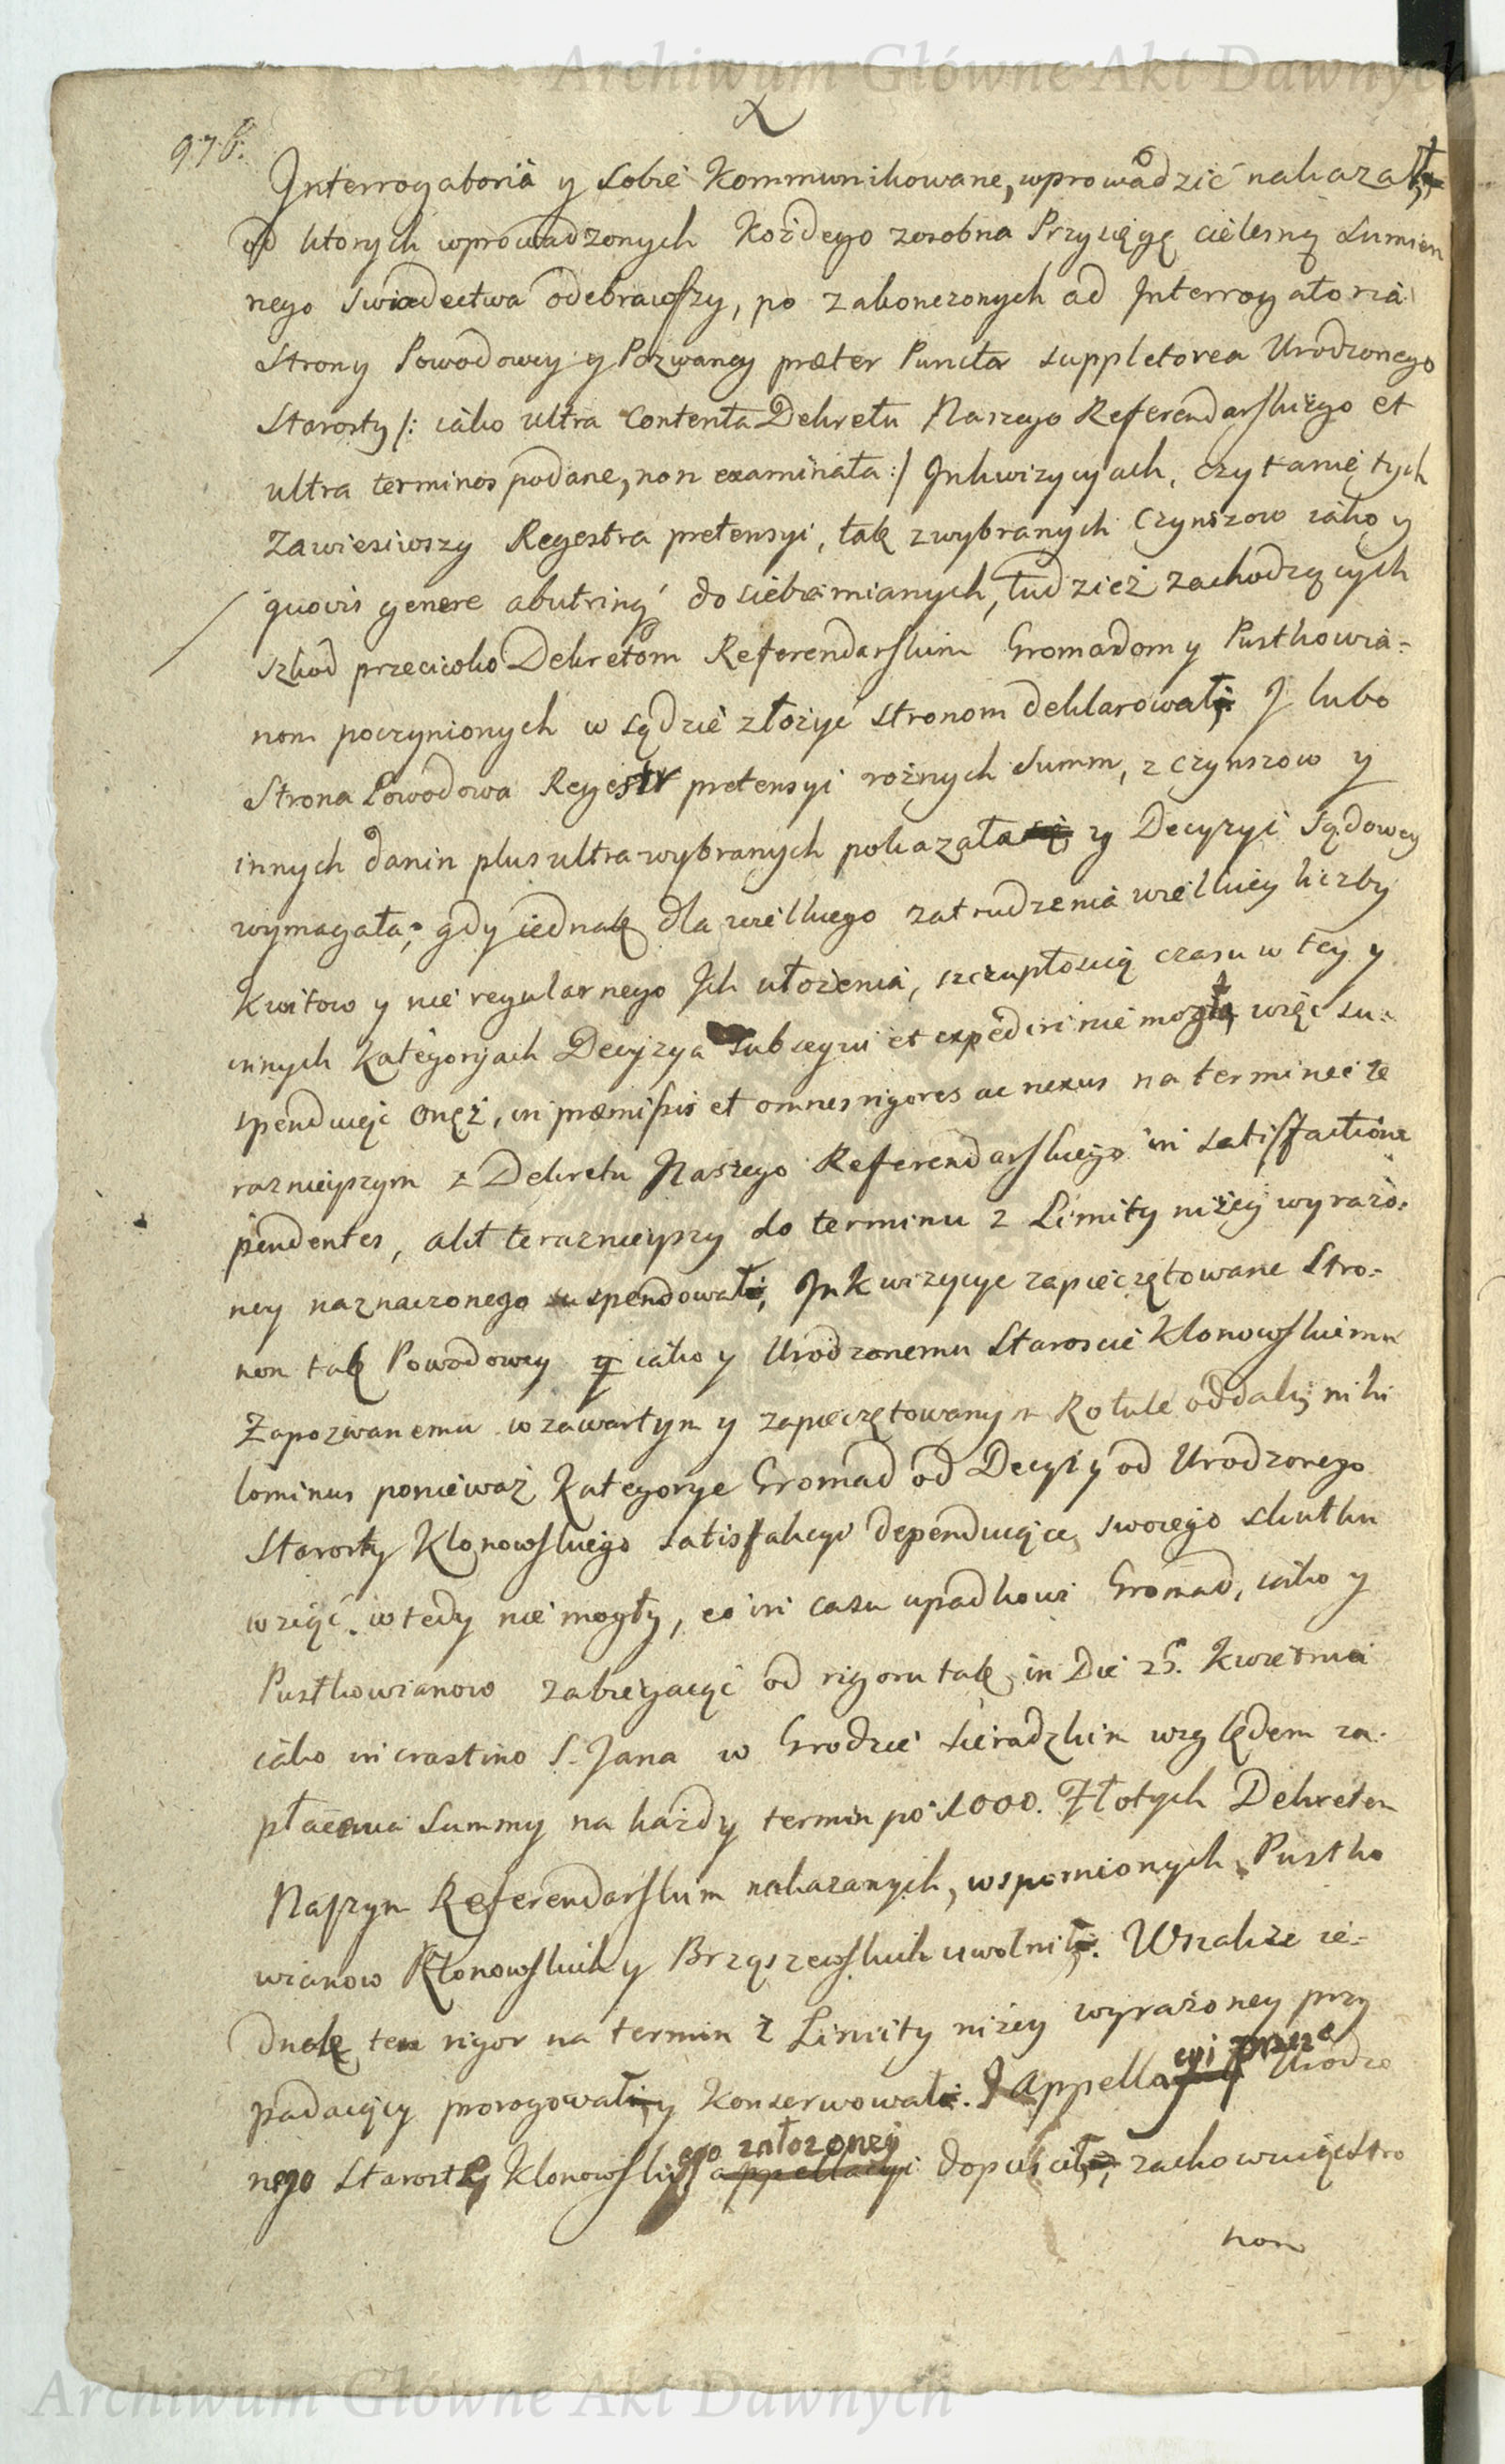 Archiwum Główne Akt Dawnych
976.
Interrogatoria y sobie Kommunikowane, wprowadzić nakazał,
od ktorych wprowadzonych Kożdego zosobna Przysięgę cielesną sumien
nego swiadectwa odebrawszy, po zakonczonych ad Interrogatoria
Strony Powodowey y Pozwaney præter Puncta suppletorea Urodzonego
Starosty /: iako ultra Contenta Dekretu Naszego Referendarskiego et
ultra terminos podane, non examinata :/ Inkwizycyach, czytanie tych
Zawiesiwszy Regestra pretensyi, tak zwybranych Czynszow iako y
quovis genere abutring do siebie mianych, tudziesz zachodzących
szkod przeciwko Dekretom Referendarskim Gromadom y Pustkowia-
nom poczynionych w sądzie złożyć stronom deklarował, I lubo
Strona Powodowa Regestr pretensyi rożnych summ, z czynszow y
innych danin plus ultra wybranych pokazała y Decyzyi sądowey
wymagała; gdy iednak dla wielkiego zatrudzenia wielkiey liczby
Kwitow y nie regularnego Ich ułożenia, szczupłością czasu w tey y
innych Kategoryach Decyzya subsequi et expediri nie mogła, więc su-
spenduiąc onęż, in præmissis et omnes rigores ac nexus na terminie te
raznieyszym z Dekretu Naszego Referendarskiego in satisfactione
pendentes, akt teraznieyszy do terminu z Limity niżey wyrażo-
ney naznaczonego suspendował, Inkwizycye zapieczętowane Stro-
nom tak Powodowey y iako y Urodzonemu Staroscie Klonowskiemu
Zapozwanemu w zawartym y zapieczętowanym Rotule oddał, nihi
lominus ponieważ Kategorye Gromad od Decyzyi y od Urodzonego
Starosty Klonowskiego satisfakcyi dependuiące, swoiego skutku
wziąć wtedy nie mogły, eo in casu upadkowi Gromad, iako y
Pustkowianow zabiegaiąc od rigoru tak in Die 25. Kwietnia
iako in crastino S. Jana w Grodzie Sieradzkim względem za-
płacenia Summy na każdy termin po 1000. Złotych Dekretem
Naszym Referendarskim nakazanych, wspomnionych Pustko
wianow Kłonowskich y Brząszewskich uwolnił. Wszakże ie-
dnak ten rigor na termin z Limity niżey wyrażoney przy
padaiący prorogował, y Konserwował. I Appellacyi przez Urodzo
nego Starostę Klonowskiego założoney appellacyi dopuścił, zachowuiąc Stro
nom
Archiwum Główne Akt Dawnych